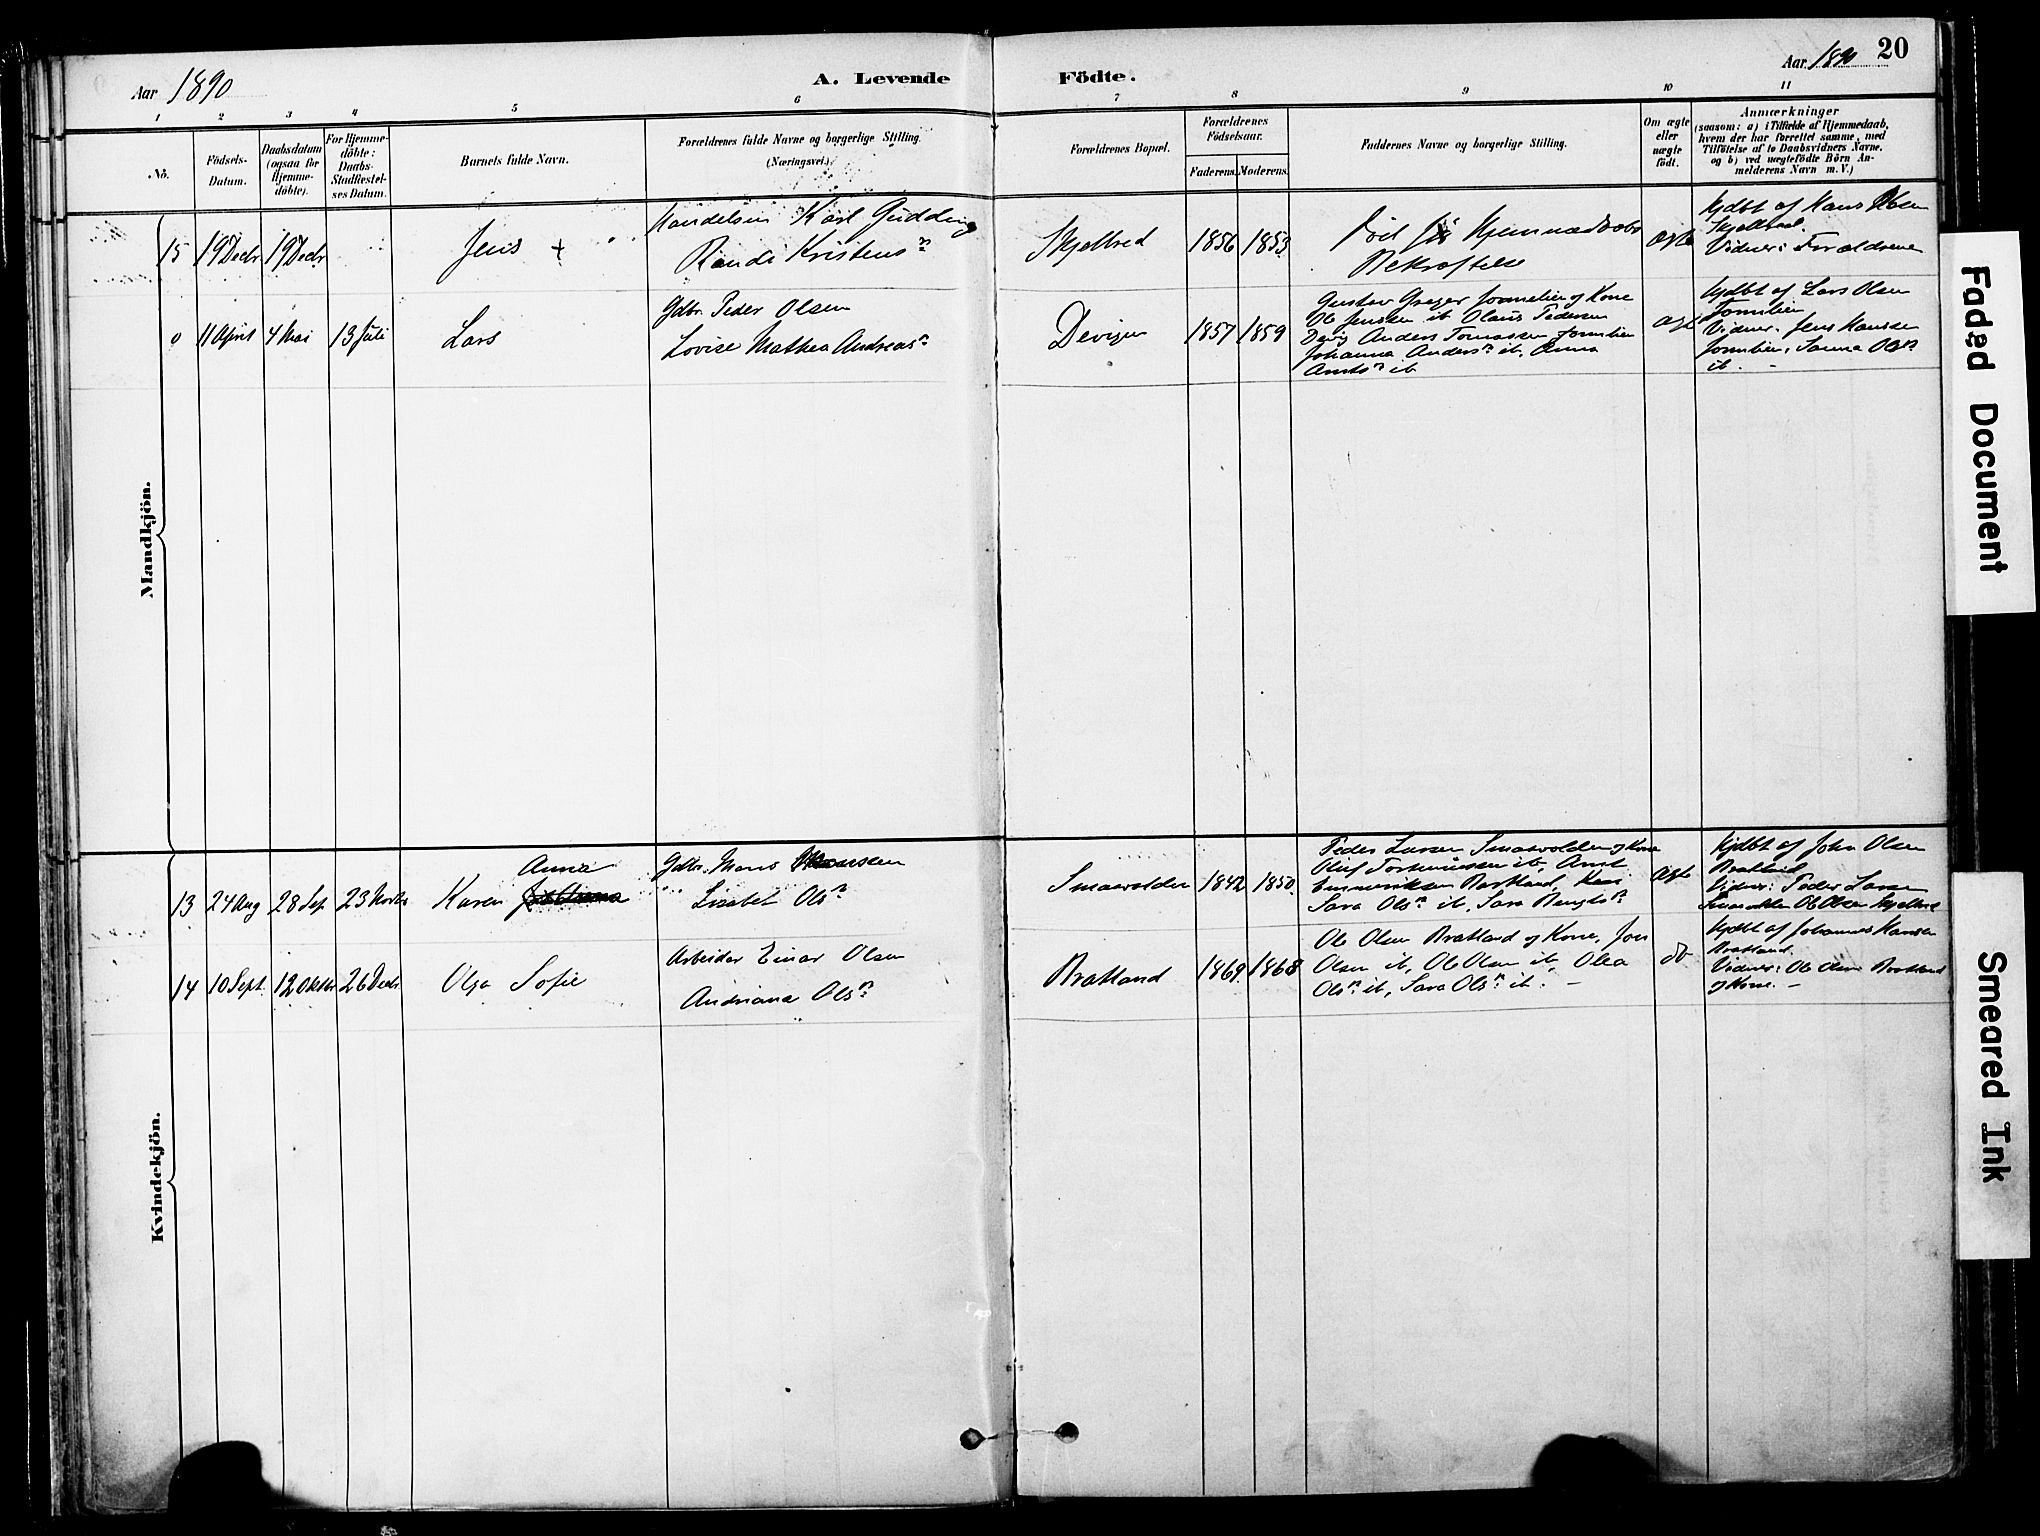 Aar 1890
A. Levende Födte.
Aar 1890
20
1 2 3 4 5 6 7 8 9 10 11
No.
Födsels-
Datum.
Daabsdatum
(ogsaa for
Hjemme-
döbte).
For Hjemme-
döbte:
Daabs-
Stadfæstel-
ses Datum.
Barnets fulde Navn.
Forældrenes fulde Navne og borgerlige Stilling.
(Næringsvei.)
Forældrenes Bopæl.
Forældrenes
Födselsaar.
Faderens. Moderens.
Faddernes Navne og borgerlige Stilling.
Om ægte
eller
uægte
født.
Anmærkninger
(saasom: a) i Tilfælde af Hjemmedaab,
hvem der har forrettet samme, med
Tilföielse af to Daabsvidners Navne.
og b) ved uægtefödte Börn An-
melderens Navn m. V.)
Mandkjön.
15 19 Decbr 19 Decbr
Jens +
Handelsm Karl Gudding
Randi Kristens n
Skjelbred
1856 1853
Död før Hjemmedaabs
Bekræftelse
ægte
Hjdbt af Hans Olsen
Skjelbred.
Vidner: Forældrene
0 11 April 4 Mai 13 Juli
Lars
Gdbr. Peder Olsen
Lovise Mathea Andreas n
Devigen
1857 1859
Ole Jenssen ib Olaus Pedersen
Anders Tomassen
Johanna Anders n ib, Anna
ib
ægte
Hjdbt af Lars Olsen
Vidner: Jens Hanssen
ib. -
Kvindekjön.
13 24 Aug 28 Sep 23 Novbr
Anna
Karen
Gdbr. Mons
Lisabet Ols n
Smaavolden
1842 1850
Peder Larsen Smaavolden og Kone
ib, Arnt
Sara Ols n ib, Sara Bengts n
ægte
Hjdbt af John Olsen
Bratland
Vidner: Peder Larsen
Smaavolden Ole Olsen Skjelbred
14 10 Sept. 12 Oktbr 26 Decbr
Olga Sofie
Arbeider Einar Olsen
Andriana Ols n
Bratland
1869 1868
Ole Olsen Bratland og Kone, Jon
Olsen ib, Ole Olsen ib, Olea
Ols n ib, Sara Ols n ib. -
do
Hjdbt af Johannes Hansen
Bratland.
Vidner: Ole Olsen Bratland
og Kone. -
Faded Document
Smeared Ink